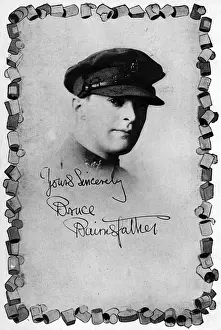 Yours Sincerely
Bruce
Bairnsfather